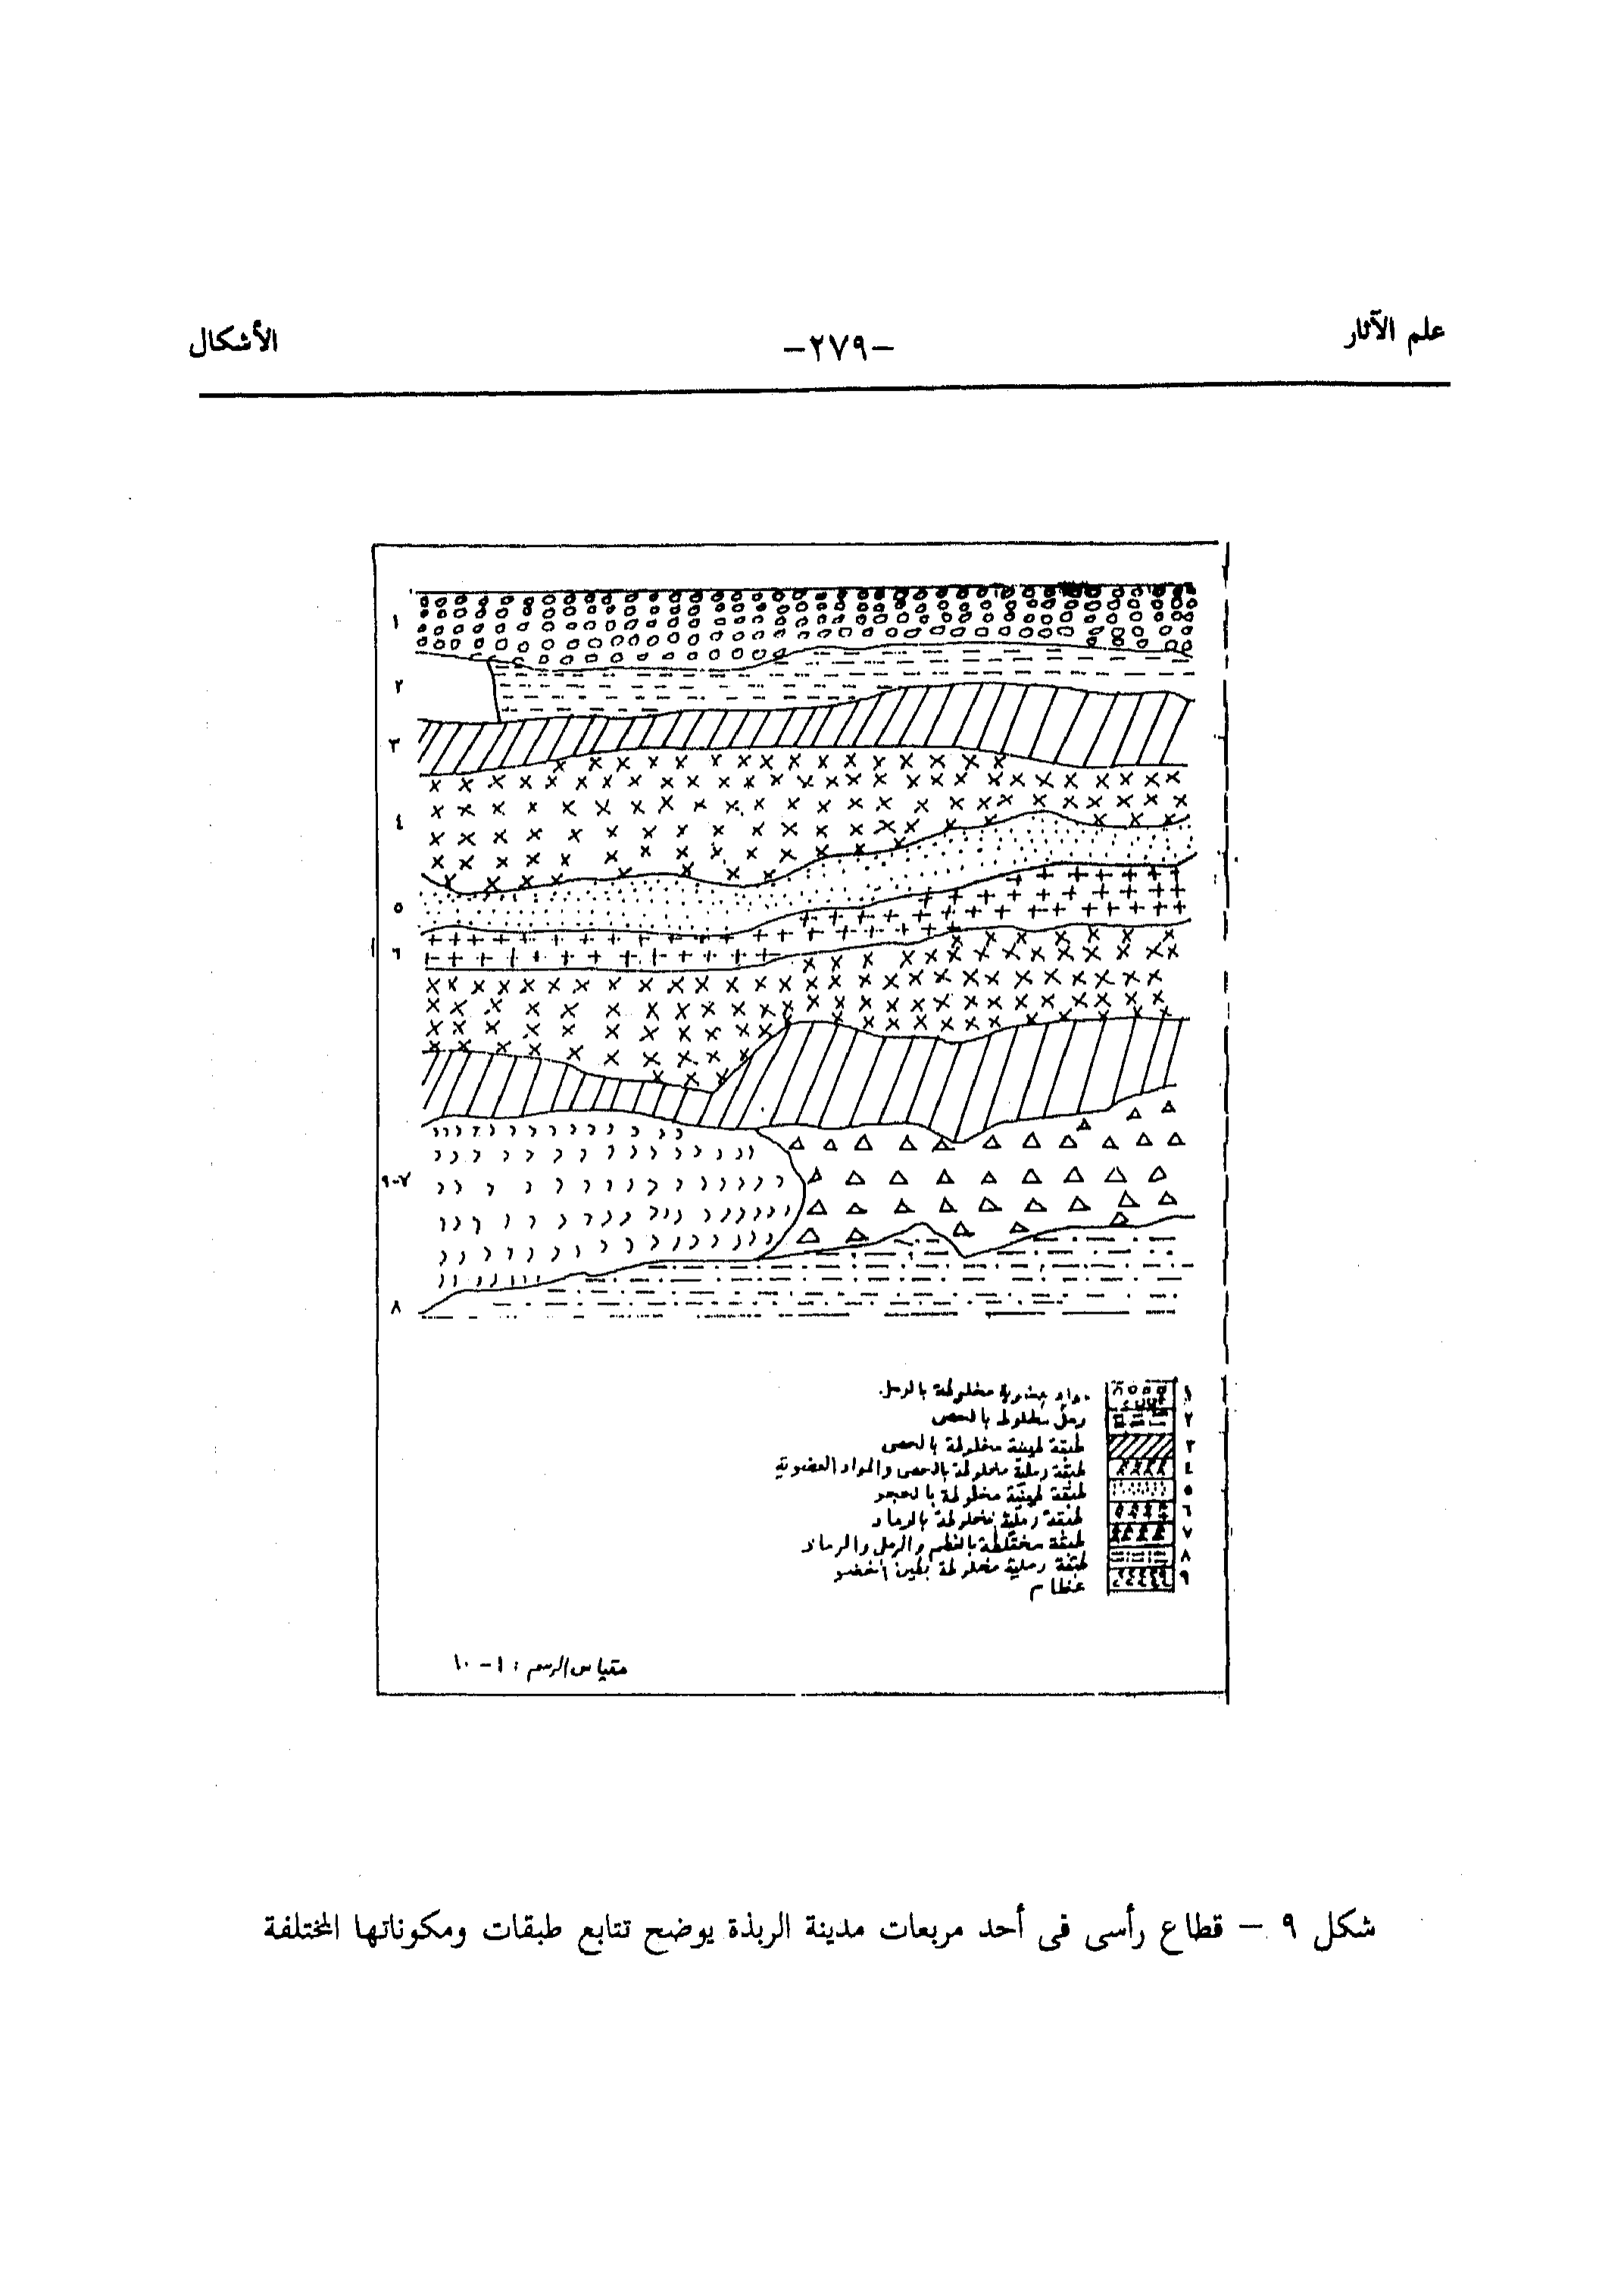 علم الآثار
-٢٧٩-
الأشكال
١
٢
٣
٤
٥
٦
٧-٩
٨
١ مواد عضوية مخلوطة بالرمل.
٢ رمل مخلوط بالحصى
٣ طبقة طينية مخلوطة بالحصى
٤ طبقة رملية مخلوطة بالحصى والمواد العضوية
٥ طبقة طينية مخلوطة بالحجر
٦ طبقة رملية مخلوطة بالرماد
٧ طبقة مختلطة والرمل والرماد
٨ طبقة رملية مخلوطة بطين أخضر
٩ عظام
مقياس الرسم : ١-١٠
شكل ٩ - قطاع رأسى فى أحد مربعات مدينة الربذة يوضح تتابع طبقات ومكوناتها المختلفة